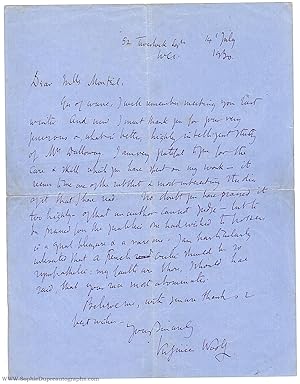 52 Tavistock Sqre 4th July
W.C.1. 1930.
Dear Mlle Monteil.
Yes of course, I well remember meeting you last
winter. And now I must thank you for your very
generous & what is better highly intelligent study
of Mrs Dalloway. I am very grateful to you for the
care & skill which you have spent on my work — it
seems to me one of the subtlest & most interesting studies
of it that I have read. No doubt you have praised it
too highly — of that an author cannot judge — but to
be praised for the qualities one had wished to possess
is a great pleasure & a rare one. I am particularly
interested that a French critic should be so
sympathetic: my faults are those, I should have
said, that your race most abominates
Believe me, with sincere thanks &
best wishes —
Yours sincerely
Virginia Woolf
www.SophieDupreautographs.com